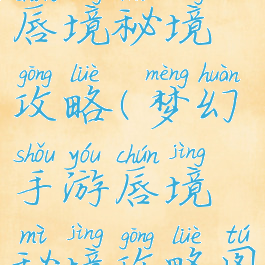 唇境秘境
gōng lüè mèng huàn
攻略(梦幻
shǒu yóu chún jìng
手游唇境
mì jìng gōng lüè tú
秘境攻略图